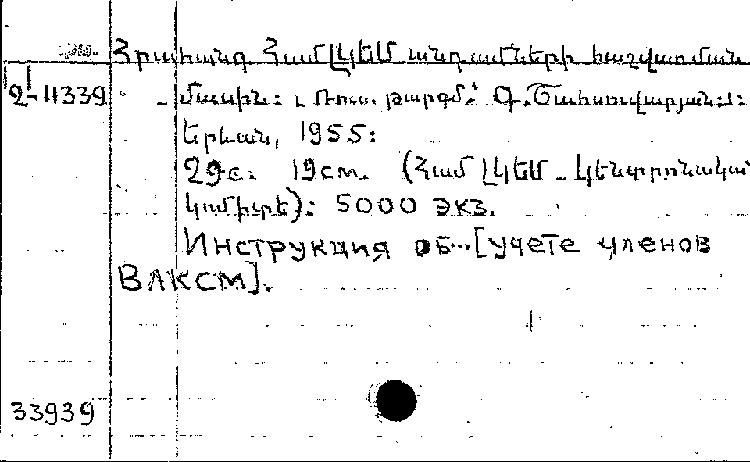 Հրահանգ ՀամԼԿԵՄ անդամների հաշվառման
2-11339 մասին: Ռուս. թարգմ.՝ Գ. Շահնավարյան:
Երևան, 1955:
29с. 19см. (ՀամԼԿԵՄ - Կենտրոնական
կոմիտե): 5000 экз.
Инструкция об...[учете членов
ВЛКСМ].
33939